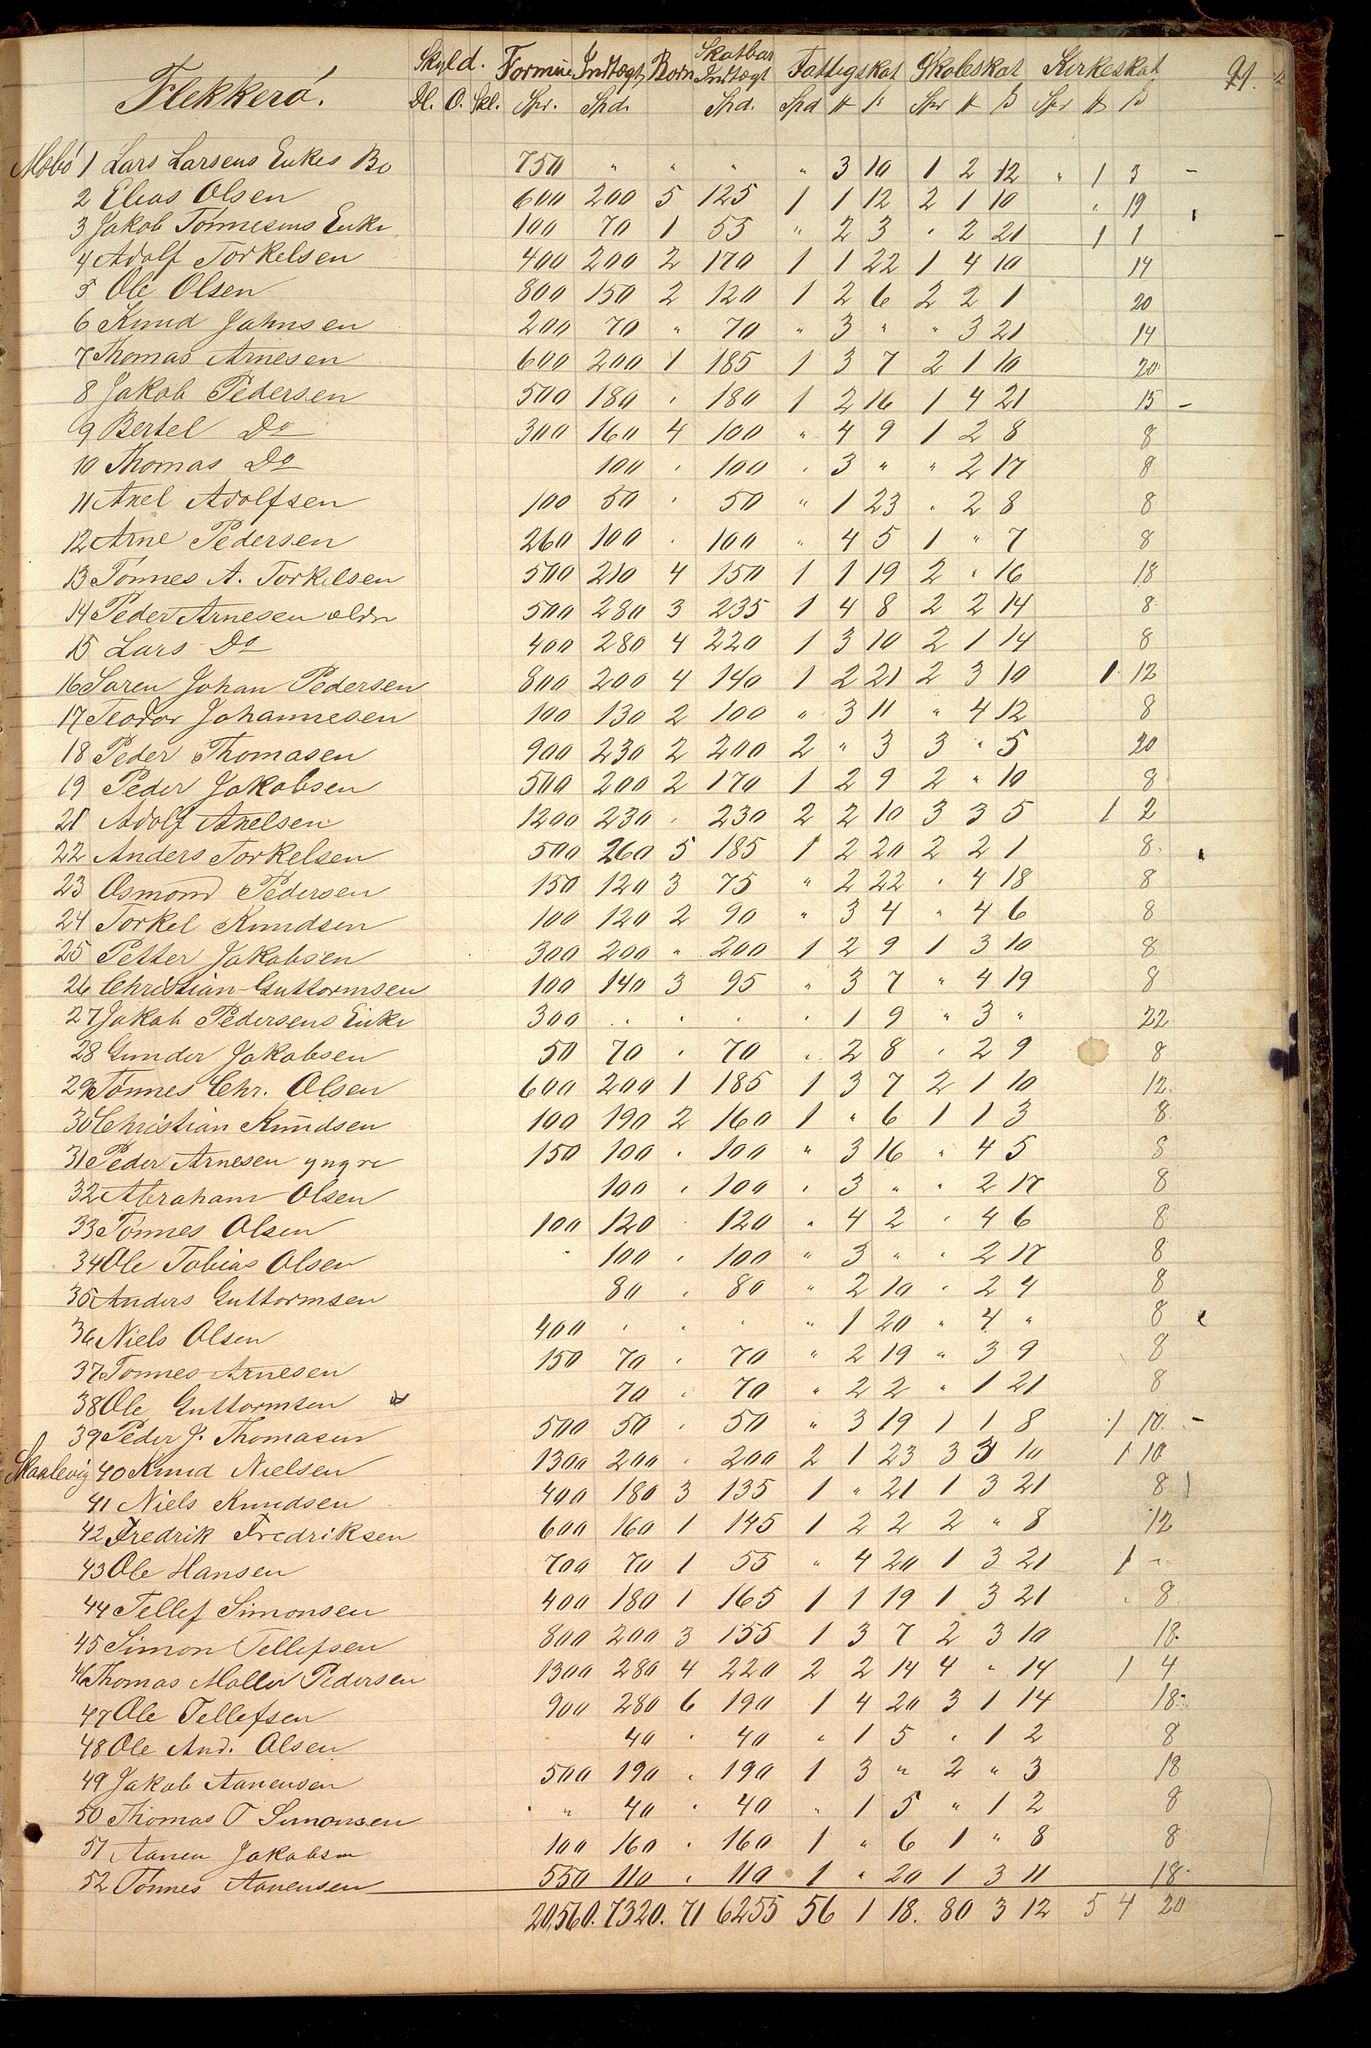 91.
Flekkerö.
Skyld. Formue Indtægt Börn Skatbar Indtægt Fattigskat Skoleskat Kirkeskat
Dl. O. Skl. Spr. Spd. Spd. Spd # ß Spr # ß Spr # ß
Mæbö 1 Lars Larsens Enkes Bo 750 " " " " 3 10 1 2 12 " 1 3
2 Elias Olsen 600 200 5 125 1 1 12 2 1 10 " 19
3 Jakob Tönnesens Enke 100 70 1 55 " 2 3 " 2 21 1 1
4 Adolf Torkelsen 400 200 2 170 1 1 22 1 4 10 14
5 Ole Olsen 800 150 2 120 1 2 6 2 2 1 20
6 Knud Jahnsen 200 70 " 70 " 3 " " 3 21 14
7 Thomas Arnesen 600 200 1 185 1 3 7 2 1 10 20
8 Jakob Pedersen 500 180 " 180 1 2 16 1 4 21 15
9 Bertel Do 300 160 4 100 " 4 9 1 2 8 8
10 Thomas Do 100 " 100 " 3 " " 2 17 8
11 Axel Adolfsen 100 50 " 50 " 1 23 " 2 8 8
12 Arne Pedersen 260 100 " 100 " 4 5 1 " 7 8
13 Tönnes A. Torkelsen 500 210 4 150 1 1 19 2 " 16 18
14 Peder Arnesen ældr 500 280 3 235 1 4 8 2 2 14 8
15 Lars Do 400 280 4 220 1 3 10 2 1 14 8
16 Sören Johan Pedersen 800 200 4 140 1 2 21 2 3 10 1 12
17 Teodor Johannesen 100 130 2 100 " 3 11 " 4 12 8
18 Peder Thomasen 900 230 2 200 2 " 3 3 " 5 20
19 Peder Jakobsen 500 200 2 170 1 2 9 2 " 10 8
21 Adolf Axelsen 1200 230 " 230 2 2 10 3 3 5 1 2
22 Anders Torkelsen 500 260 5 185 1 2 20 2 2 1 8
23 Osmond Pedersen 150 120 3 75 " 2 22 " 4 18 8
24 Torkel Knudsen 100 120 2 90 " 3 4 " 4 6 8
25 Petter Jakobsen 300 200 " 200 1 2 9 1 3 10 8
26 Christian Guttormsen 100 140 3 95 " 3 7 " 4 19 8
27 Jakob Pedersens Enke 300 " " " " 1 9 " 3 " 22
28 Gunder Jakobsen 50 70 " 70 " 2 8 " 2 9 8
29 Tönnes Chr. Olsen 600 200 1 185 1 3 7 2 1 10 12
30 Christian Knudsen 100 190 2 160 1 " 6 1 1 3 8
31 Peder Arnesen yngre 150 100 " 100 " 3 16 " 4 5 8
32 Abraham Olsen 100 " 100 " 3 " " 2 17 8
33 Tönnes Olsen 100 120 " 120 " 4 2 " 4 6 8
34 Ole Tobias Olsen " 100 " 100 " 3 " " 2 17 8
35 Anders Guttormsen 80 " 80 " 2 10 " 2 4 8
36 Niels Olsen 400 " " " " 1 20 " 4 " 8
37 Tönnes Arnesen 150 70 " 70 " 2 19 " 3 9 8
38 Ole Guttormsen 70 " 70 " 2 2 " 1 21 8
39 Peder J. Thomasen 500 50 " 50 " 3 19 1 1 8 1 10
Skaalevig 40 Knud Nielsen 1300 200 " 200 2 1 23 3 3 10 1 10
41 Niels Knudsen 400 180 3 135 1 " 21 1 3 21 8
42 Fredrik Fredriksen 600 160 1 145 1 2 2 2 " 8 12
43 Ole Hansen 700 70 1 55 " 4 20 1 3 21 1 "
44 Tellef Simonsen 400 180 1 165 1 1 19 1 3 21 " 8
45 Simon Tellefsen 800 200 3 155 1 3 7 2 3 10 18
46 Thomas Möller Pedersen 1300 280 4 220 2 2 14 4 " 14 1 4
47 Ole Tellefsen 900 280 6 190 1 4 20 3 1 14 18
48 Ole And. Olsen 40 " 40 " 1 5 " 1 2 8
49 Jakob Aanensen 500 190 " 190 1 3 " 2 " 3 18
50 Thomas O Simonsen " 40 " 40 " 1 5 " 1 2 8
51 Aanen Jakobsen 100 160 " 160 1 " 6 1 " 8 8
52 Tönnes Aanensen 550 110 " 110 1 " 20 1 3 11 18
20,560. 7320. 71 6255 56 1 18. 80 3 12 5 4 20